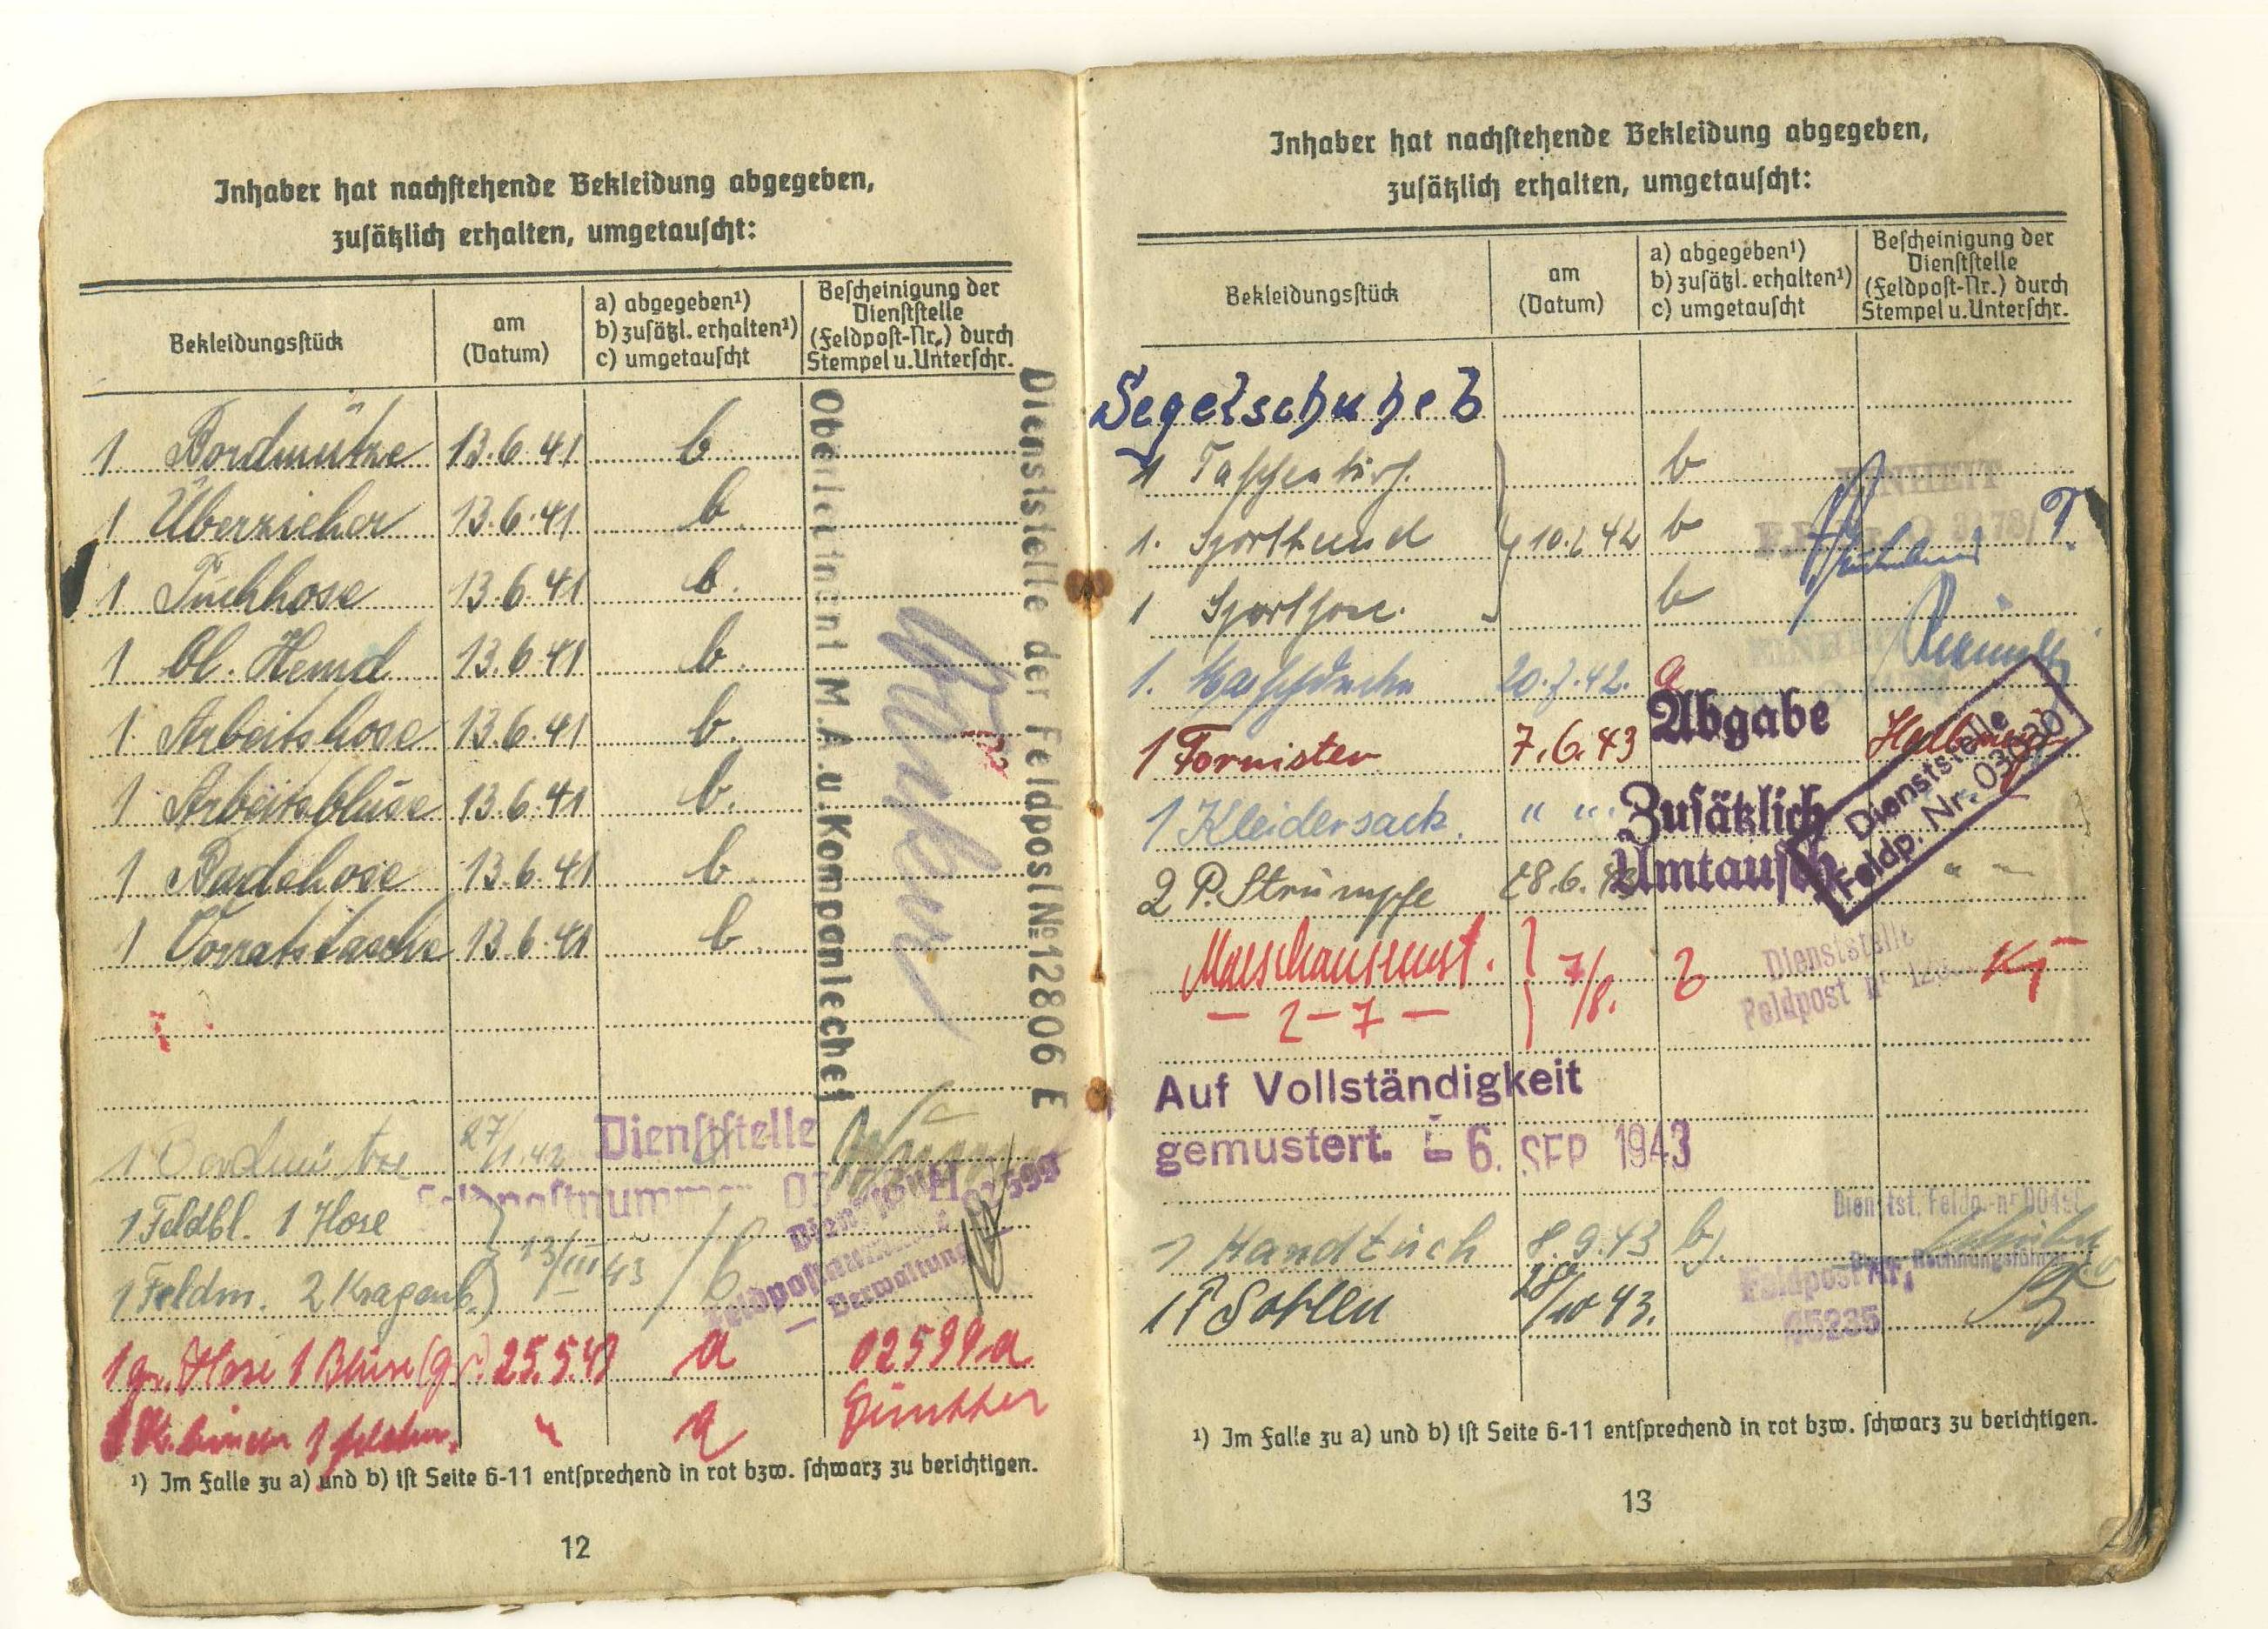 Inhaber hat nachstehende Bekleidung abgegeben,
zusätzlich erhalten, umgetauscht:
Bekleidungsstück
am
(Datum)
a) abgegeben¹)
b) zusätzl. erhalten¹)
c) umgetauscht
Bescheinigung der
Dienststelle
(Feldpost-Nr.) durch
Stempel u. Unterschr.
1 Bordmütze 13.6.41 b
1 Überzieher 13.6.41 b
1 Tuchhose 13.6.41 b
1 bl. Hemd 13.6.41 b
1 Arbeitshose 13.6.41 b
1 Arbeitsbluse 13.6.41 b
1 Badehose 13.6.41 b
1 Vorratstasche 13.6.41 b
Oberleutnant M.A. u. Kompaniechef
Dienststelle der Feldpost № 12806 E
1 Bordmütze 27/1.42
Dienststelle
Feldpostnummer
1 Feldbl. 1 Hose
1 Feldm. 2 Kragenb. 13/III 43 b
Verwaltung
1 gr. Hose 1 Bluse (gr.) 25.5.43 a 02599a
a Günther
¹) Im Falle zu a) und b) ist Seite 6-11 entsprechend in rot bzw. schwarz zu berichtigen.
12
Inhaber hat nachstehende Bekleidung abgegeben,
zusätzlich erhalten, umgetauscht:
Bekleidungsstück
am
(Datum)
a) abgegeben¹)
b) zusätzl. erhalten¹)
c) umgetauscht
Bescheinigung der
Dienststelle
(Feldpost-Nr.) durch
Stempel u. Unterschr.
Segelschuhe b
1 b
EINHEIT
1. Sporthemd 42 b
1 Sporthose b
1. 20.7.42. a
1 Tornister 7.6.43 Abgabe
1 Kleidersack " " Zusätzlich
Dienststelle
Feldp. Nr.
2 P. Strümpfe 28.6.43 Umtausch " "
7/8. b
Dienststelle
Feldpost
- 2 - 7 -
Auf Vollständigkeit
gemustert. - 6. SEP 1943
1 Handtuch 8.9.43 b).
1 P Sohlen 28/10 43.
Feldpost Nr.
¹) Im Falle zu a) und b) ist Seite 6-11 entsprechend in rot bzw. schwarz zu berichtigen.
13